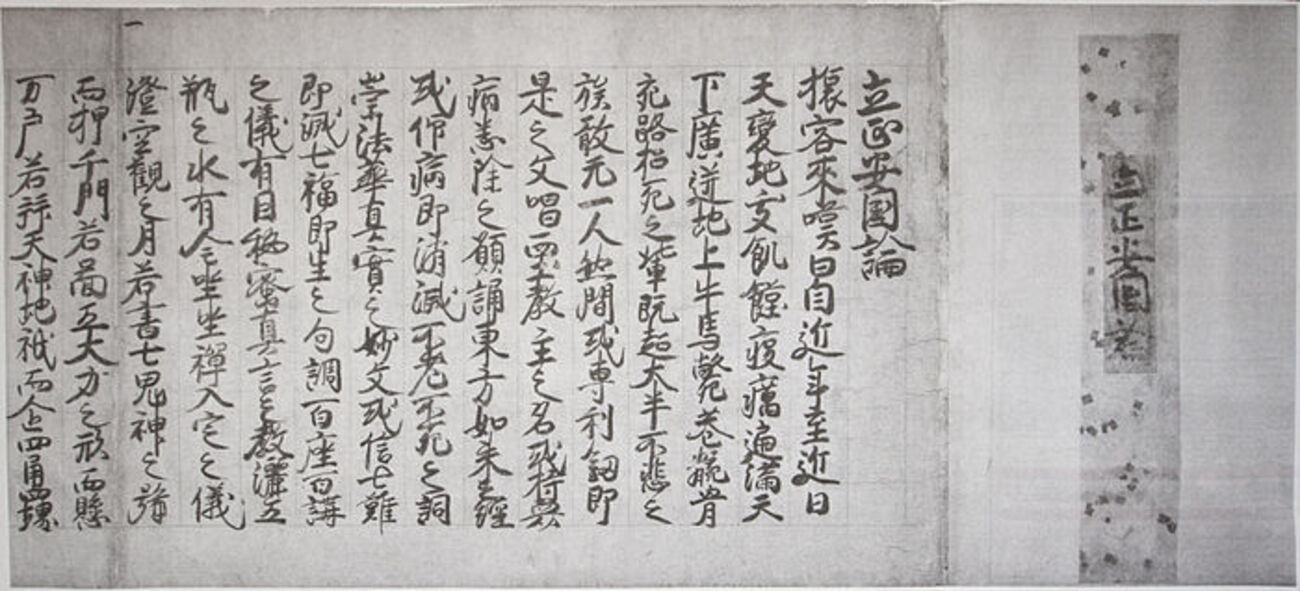 立正安国論
立正安國論
旅客來嘆曰自近年至近日
天變地夭飢饉疫癘遍滿天
下廣迸地上牛馬斃巷骸骨
充路招死之輩既超大半不悲之
族敢无一人然間或專利劔即
是之文唱西土教主之名或持衆
病悉除之願誦東方如來之經
或仰病即消滅不老不死之詞
崇法華真實之妙文或信七難
即滅七福即生之句調百座百講
之儀有因秘密真言之教灑五
瓶之水有全坐禪入定之儀
澄空觀之月若書七鬼神之號
而押千門若圖五大力之形而懸
万戸若拜天神地祇而企四角四堺
一